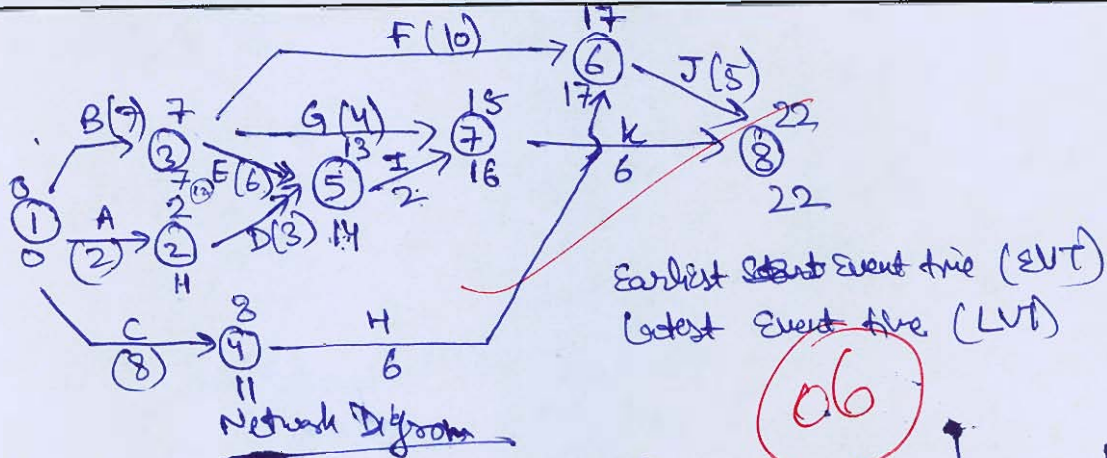 17
F(10)
6
17
J(5)
B(7)
7
3
7
G(4)
15
7
16
K
6
22
8
22
E(6)
13
5
14
I
2
0
1
0
A
(2)
2
2
11
D(3)
C
(8)
8
4
11
H
6
Earliest Event time (EVT)
Latest Event time (LVT)
06
Network Digrom